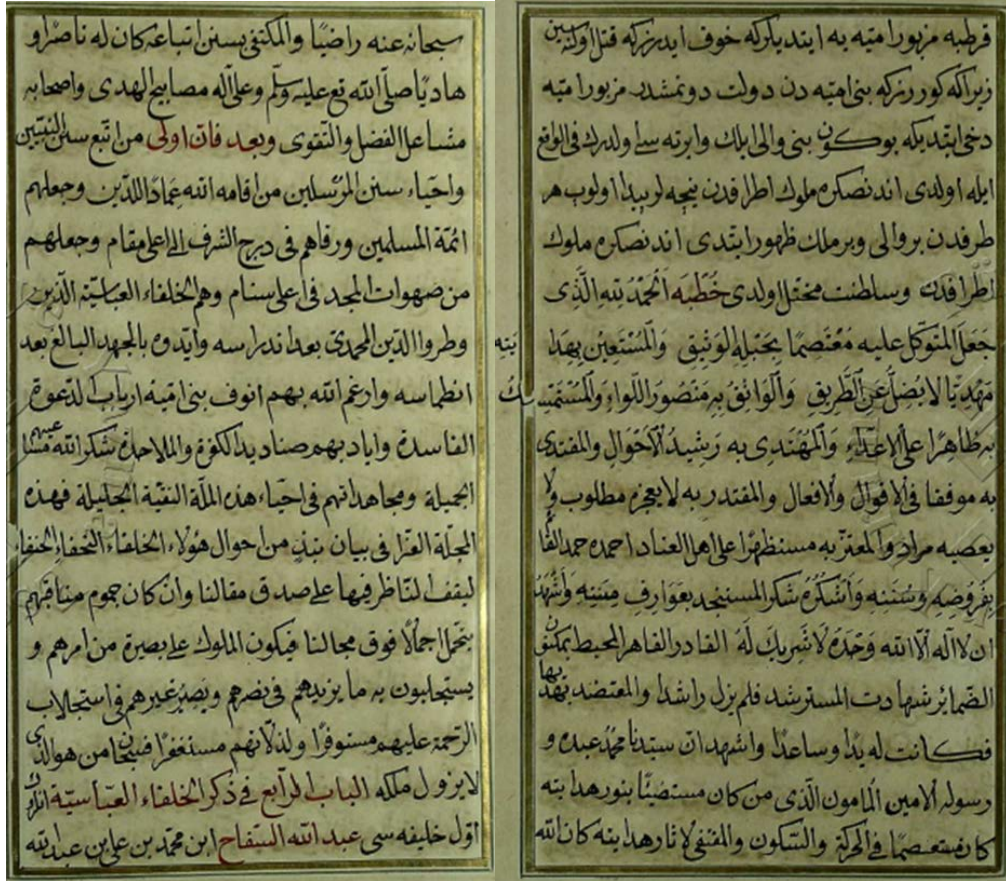 قرطبه مزبور امیّه یه ایتدیكركه خوف ایدرزكه قتل اولنه سین
زیرا كه كوررزكه بنی امیّه دن دولت دونمشدر مزبور امیّه
دخی ایتدیكه بوكون بنی والی ایلك وایرته سی اولدرك فی الواقع
ایله اولدی اندنصكره ملوك اطرافدن نیجه لر پیدا اولوب هر
طرفدن بر والی وبر ملك ظهور ایتدی اندنصكره ملوك
اطرافدن وسلطنت مختل اولدی خُطْبَه اَلْحَمْدُ لِلّٰهِ الَّذِی
جَعَلَ الْمُتَوَكِّلَ علیه مُعْتَصِمًا بِحَبْلِهِ الْوَثِیقِ وَالْمُسْتَعِینَ بِهِدَایَتِهِ
مَهْدِیًّا لا یَضِلُّ عَنِ الطَّرِیقِ وَالْوَاثِقَ بِهِ مَنْصُورَ اللِّوَاءِ وَالْمُسْتَمْسِكَ
بِه ظَاهِرًا عَلَی الاَعْدَاءِ وَالْمُهْتَدِی به رَشِیدُ الْاَحْوَالِ والمقتدی
به موفقا فی الاقوال والافعال والمقتدر به لا یعجزه مطلوب ولا
یعصیه مراد والمعتزّ به مستظهرًا علی اهل العناد احمده حمد القائم
بِفُرُوضِهِ وَسُنَنِهِ وَاَشْكُرُهُ شكر المستنجد بعَوَارِفِ مِنَنِهِ وَاَشْهَدُ
ان لا اله الّا الله وَحْدَهُ لَا شَرِیكَ لَهُ القادر القاهر المحیط بمكنون
الضّمائر شهادت المسترشد فلم یزل راشدا والمعتضد بها
فكانت له یدًا وساعدًا واشهد ان سیّدنا محمّدً عبده و
رسوله الامین المأمون الّذی من كان مستضیئًا بنور هدایته
كان مستعصمًا فی الحركة والسّكون والمقتفی لاثار هدایته كان الله
سبحانه عنه راضیًا والمكتفی بسنن اتباعه كان له ناصرًا و
هادیًا صلّی الله تع علیه وسلّم وعلی آله مصابیح الهدی واصحابه
مشاعل الفضل والتّقوی وبعد فانّ اولی من اتبع سنن النبیّین
واحیاء سنن المرسلین من اقامه الله عِمادًا للدّین وجعلهم
ائمّة المسلمین ورقاهم فی درج الشرف الی اعلی مقام وجعلهم
من صهوات المجد فی اعلی سنام وهم الخلفاء العباسیّة الّذین
وطروا الدّین المحمدیّ بعد اندراسه وایّدوه بالجهد البالغ بعد
انطماسه وارغم الله بهم انوف بنی امیّة ارباب الدّعوة
الفاسدة واباد بهم صنادید الكفرة والملاحدة شكر الله عنهم مساعیهم
الجمیلة ومجاهداتهم فی احیاء هذه الملّة النقیّة الجلیلة فهذه
المجلّة الغرّا فی بیان نبذٍ من احوال هؤلاء الخلفاء النحفاءِ الحنفاءِ
لیقف النّاظر فیها علی صدق مقالنا وان كان جموم مناقبهم
یتحمّل اجمالًا فوق مجالنا فیكون الملوك علی بصیرة من امرهم و
یستجلبون به ما یزیدهم فی نصرهم ویصیر غیرهم فی استجلاب
الرّحمة علیهم مستوفرًا ولذلّاتهم مستغفرًا فسبحان من هو الّذی
لا یزول ملكه الباب الرّابع فی ذكر الخلفاء العبّاسیّة
اوّل خلیفه سی عبد الله السّفاح ابن محمّد بن علی بن عبد الله